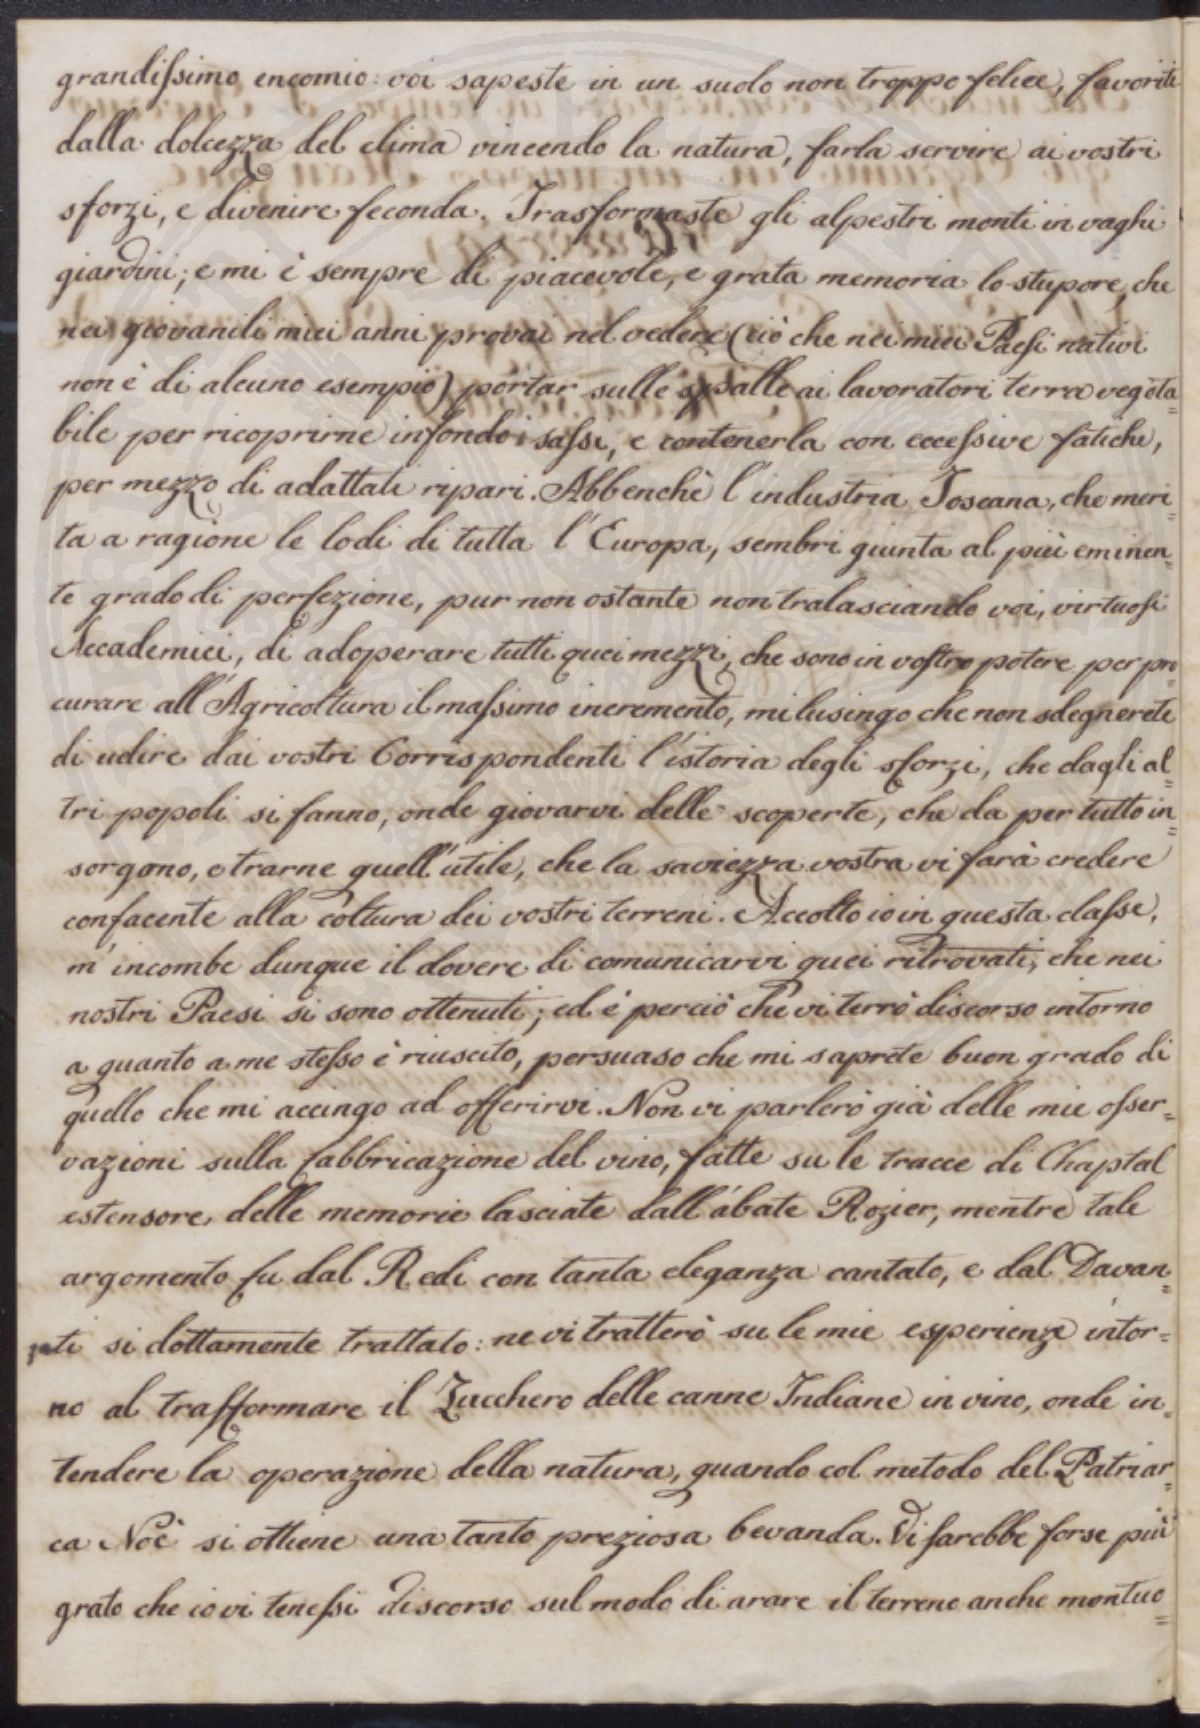 grandissimo encomio: voi sapeste in un suolo non troppo felice, favoriti
dalla dolcezza del clima vincendo la natura, farla servire ai vostri
sforzi, e divenire feconda. Trasformaste gli alpestri monti in vaghi
giardini; e mi è sempre di piacevole, e grata memoria lo stupore, che
nei giovanili miei anni provai nel vedere (ciò che nei miei Paesi nativi
non è di alcuno esempio) portar sulle spalle ai lavoratori terra vegeta=
bile per ricoprirne infondo i sassi, e contenerla con eccessive fatiche,
per mezzo di adattati ripari. Abbenchè l'industria Toscana, che meri=
ta a ragione le lodi di tutta l'Europa, sembri giunta al più eminen=
te grado di perfezione, pur non ostante non tralasciando voi, virtuosi
Accademici, di adoperare tutti quei mezzi, che sono in vostro potere per pro=
curare all'Agricoltura il massimo incremento, mi lusingo che non sdegnerete
di udire dai vostri Corrispondenti l'istoria degli sforzi, che dagli al=
tri popoli si fanno, onde giovarvi delle scoperte, che da per tutto in=
sorgono, e trarne quell'utile, che la saviezza vostra vi farà credere
confacente alla coltura dei vostri terreni. Accolto io in questa classe,
m'incombe dunque il dovere di comunicarvi quei ritrovati, che nei
nostri Paesi si sono ottenuti; ed è perciò che vi terrò discorso intorno
a quanto a me stesso è riuscito, persuaso che mi saprete buon grado di
quello che mi accingo ad offerirvi. Non vi parlerò già delle mie osser=
vazioni sulla fabbricazione del vino, fatte su le tracce di Chaptal
estensore delle memorie lasciate dall'abate Rozier, mentre tale
argomento fu dal Redi con tanta eleganza cantato, e dal Davan=
ti si dottamente trattato: ne vi tratterò su le mie esperienze intor=
no al trasformare il Zucchero delle canne Indiane in vino, onde in=
tendere la operazione della natura, quando col metodo del Patriar=
ca Noè si ottiene una tanto preziosa bevanda. Vi sarebbe forse più
grato che io vi tenessi discorso sul modo di arare il terreno anche montuo=